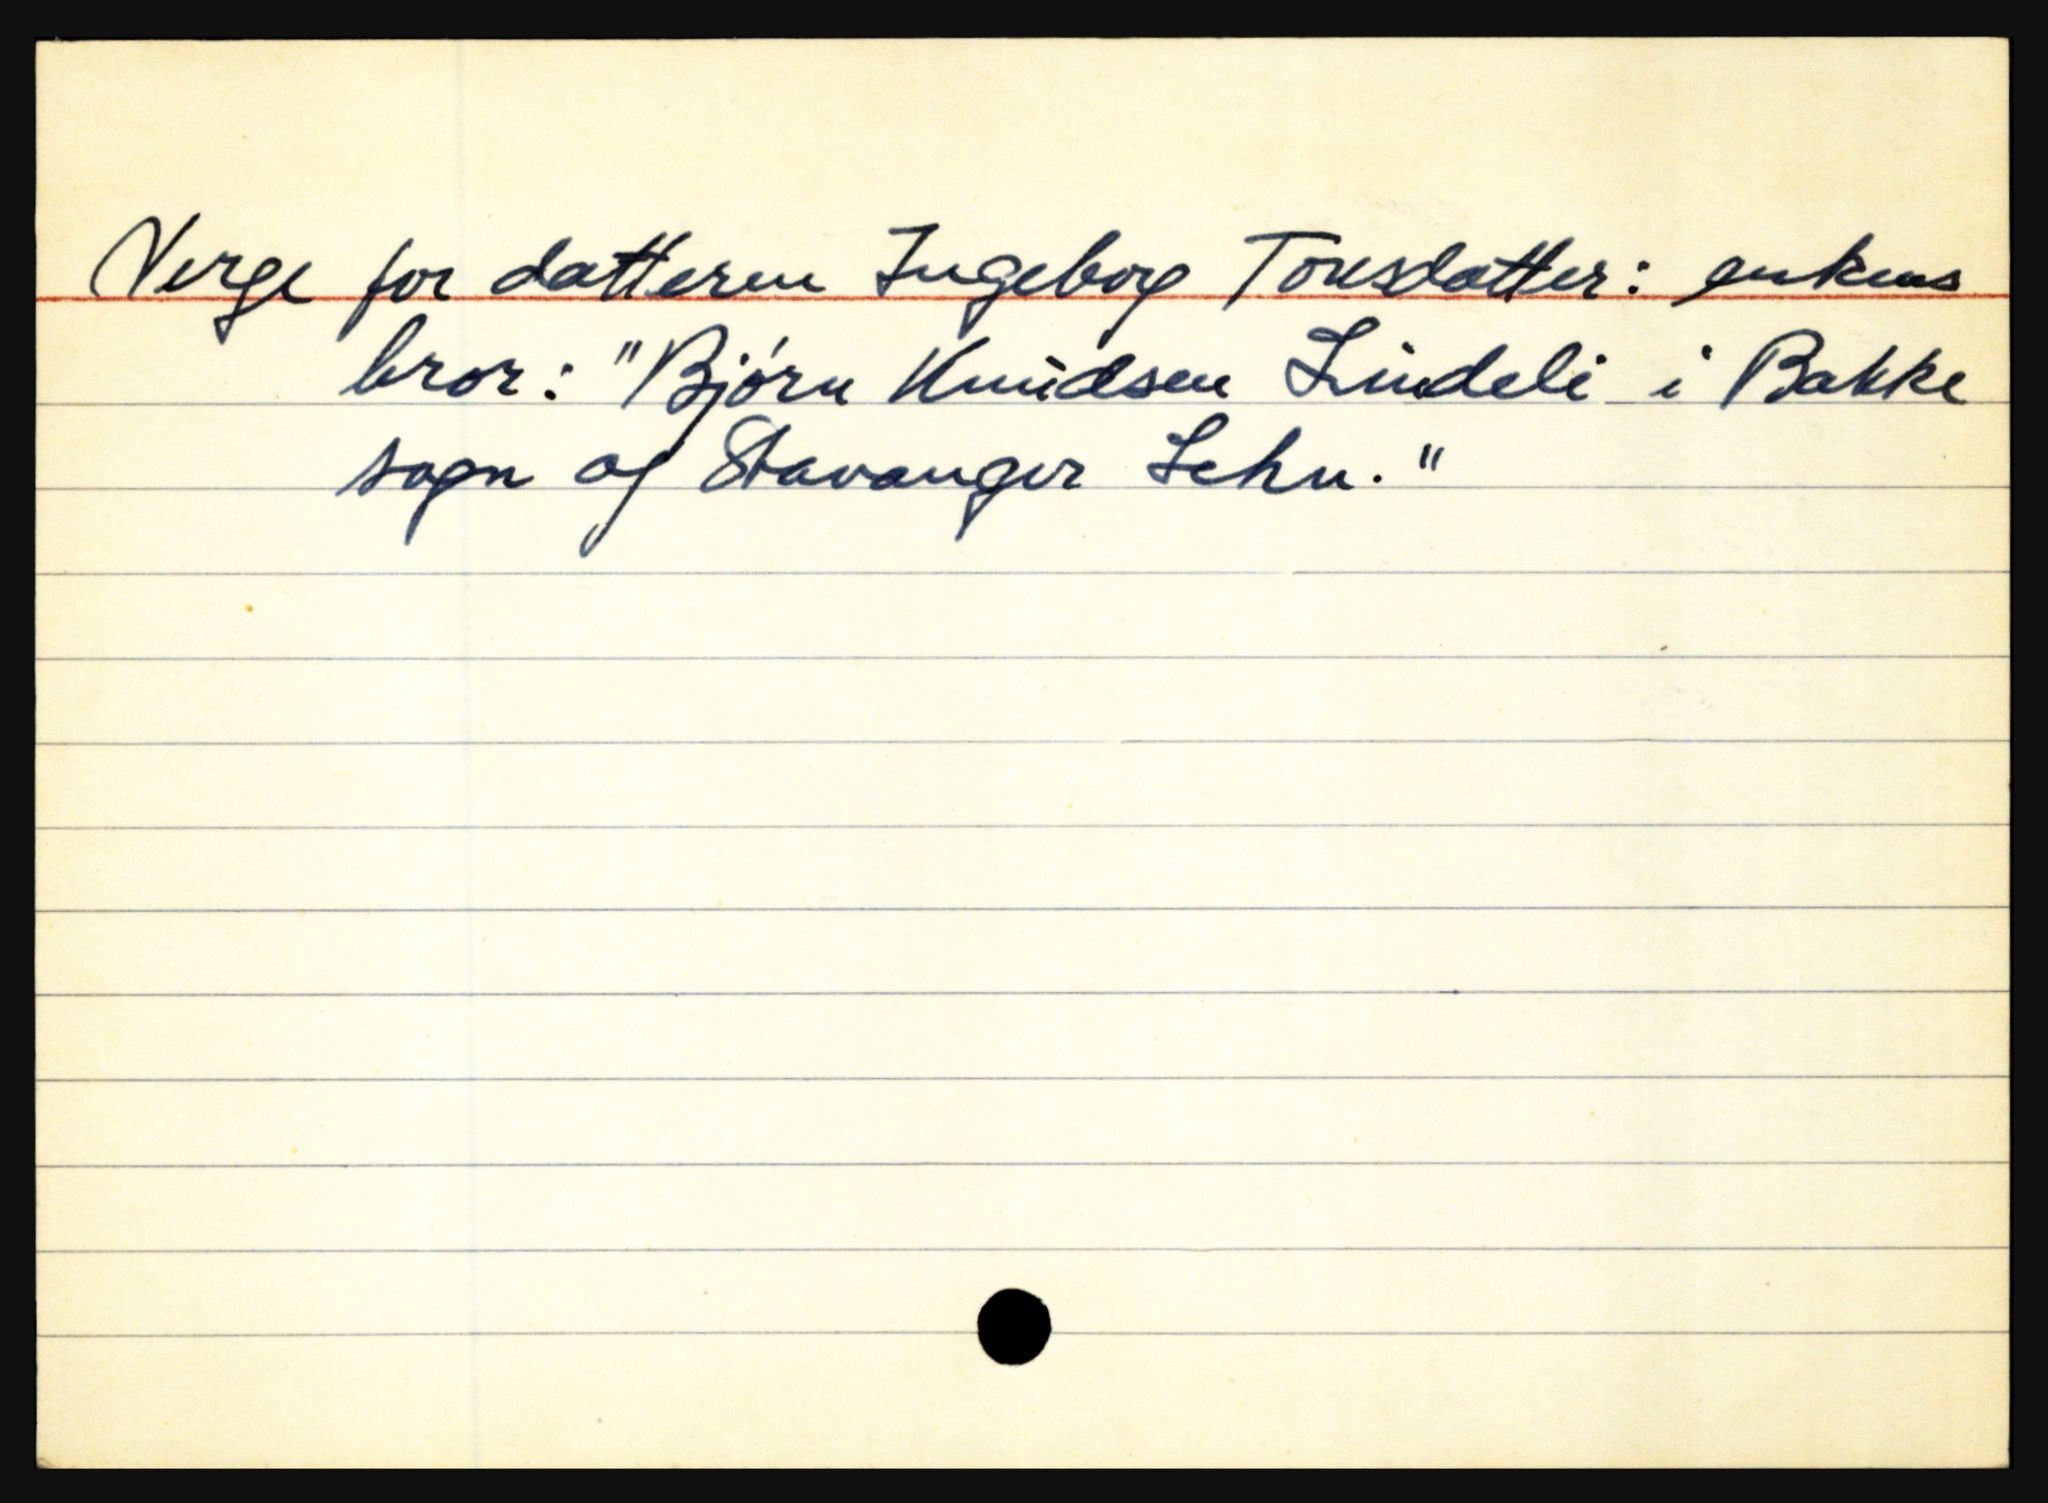 Verge for datteren Ingeborg Toresdatter: enkens
bror: "Bjørn Knudsen Lindeli i Bakke
sogn og Stavanger Lehn."